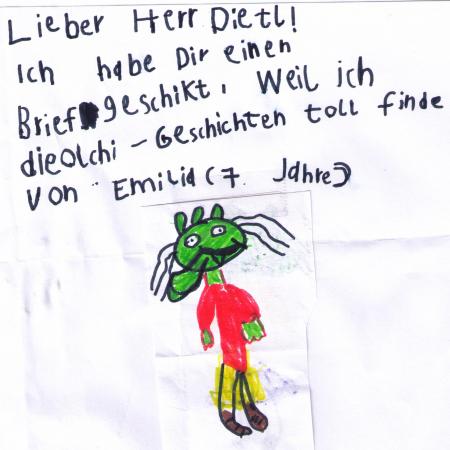 Lieber Herr Dietl!
Ich habe Dir einen
Brief geschikt, Weil ich
die Olchi - Geschichten toll finde
von Emilia (7 Jahre)